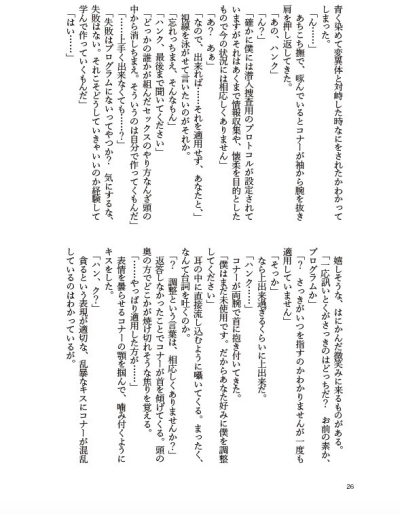 青く染めて変異体と対峙した時なにをされたかわかって
しまった。
「ん……」
あちこち撫で、啄んでいるとコナーが袖から腕を抜き
肩を押し返してきた。
「あの、ハンク」
「ん？」
「確かに僕には潜入捜査用のプロトコルが設定されて
いますがそれはあくまで情報収集や、懐柔を目的とした
もので今の状況には相応しくありません」
「あ？ あぁ」
「なので、出来れば……それを適用せず、あなたと、」
視線を泳がせて言いたいのがそれか。
「忘れっちまえ、そんなもん」
「ハンク、最後まで聞いてください」
「どっかの誰かが組んだセックスのやり方なんざ頭の
中から消しちまえ。そういうのは自分で作ってくもんだ」
「……上手く出来なくても……？」
「失敗はプログラムにないってやつか？ 気にするな、
失敗はない。それこそどうしていきゃいいのか経験して
学んで作っていくもんだ」
「はい……」
嬉しそうな、はにかんだ微笑みに来るものがある。
「一応訊いとくがさっきのはどっちだ？ お前の素か、
プログラムか」
「？ さっきがいつを指すのかわかりませんが一度も
適用していません」
「そっか」
なら上出来過ぎるくらいに上出来だ。
「ハンク……」
コナーが両腕で首に抱き付いてきた。
「僕はまだ未使用です。だからあなた好みに僕を調整
してください」
耳の中に直接流し込むように囁いてくる。まったく、
なんて台詞を吐くのか。
「？ 調整という言葉は、相応しくありませんか？」
返答しなかったことでコナーが首を傾げてくる。頭の
奥の方でどこかが焼け切れそうな焦りを覚える。
「……やっぱり適用した方が……」
表情を曇らせるコナーの顎を掴んで、噛み付くように
キスをした。
「ハン、ク？」
貪るという表現が適切な、乱暴なキスにコナーが混乱
しているのはわかっているが。
26